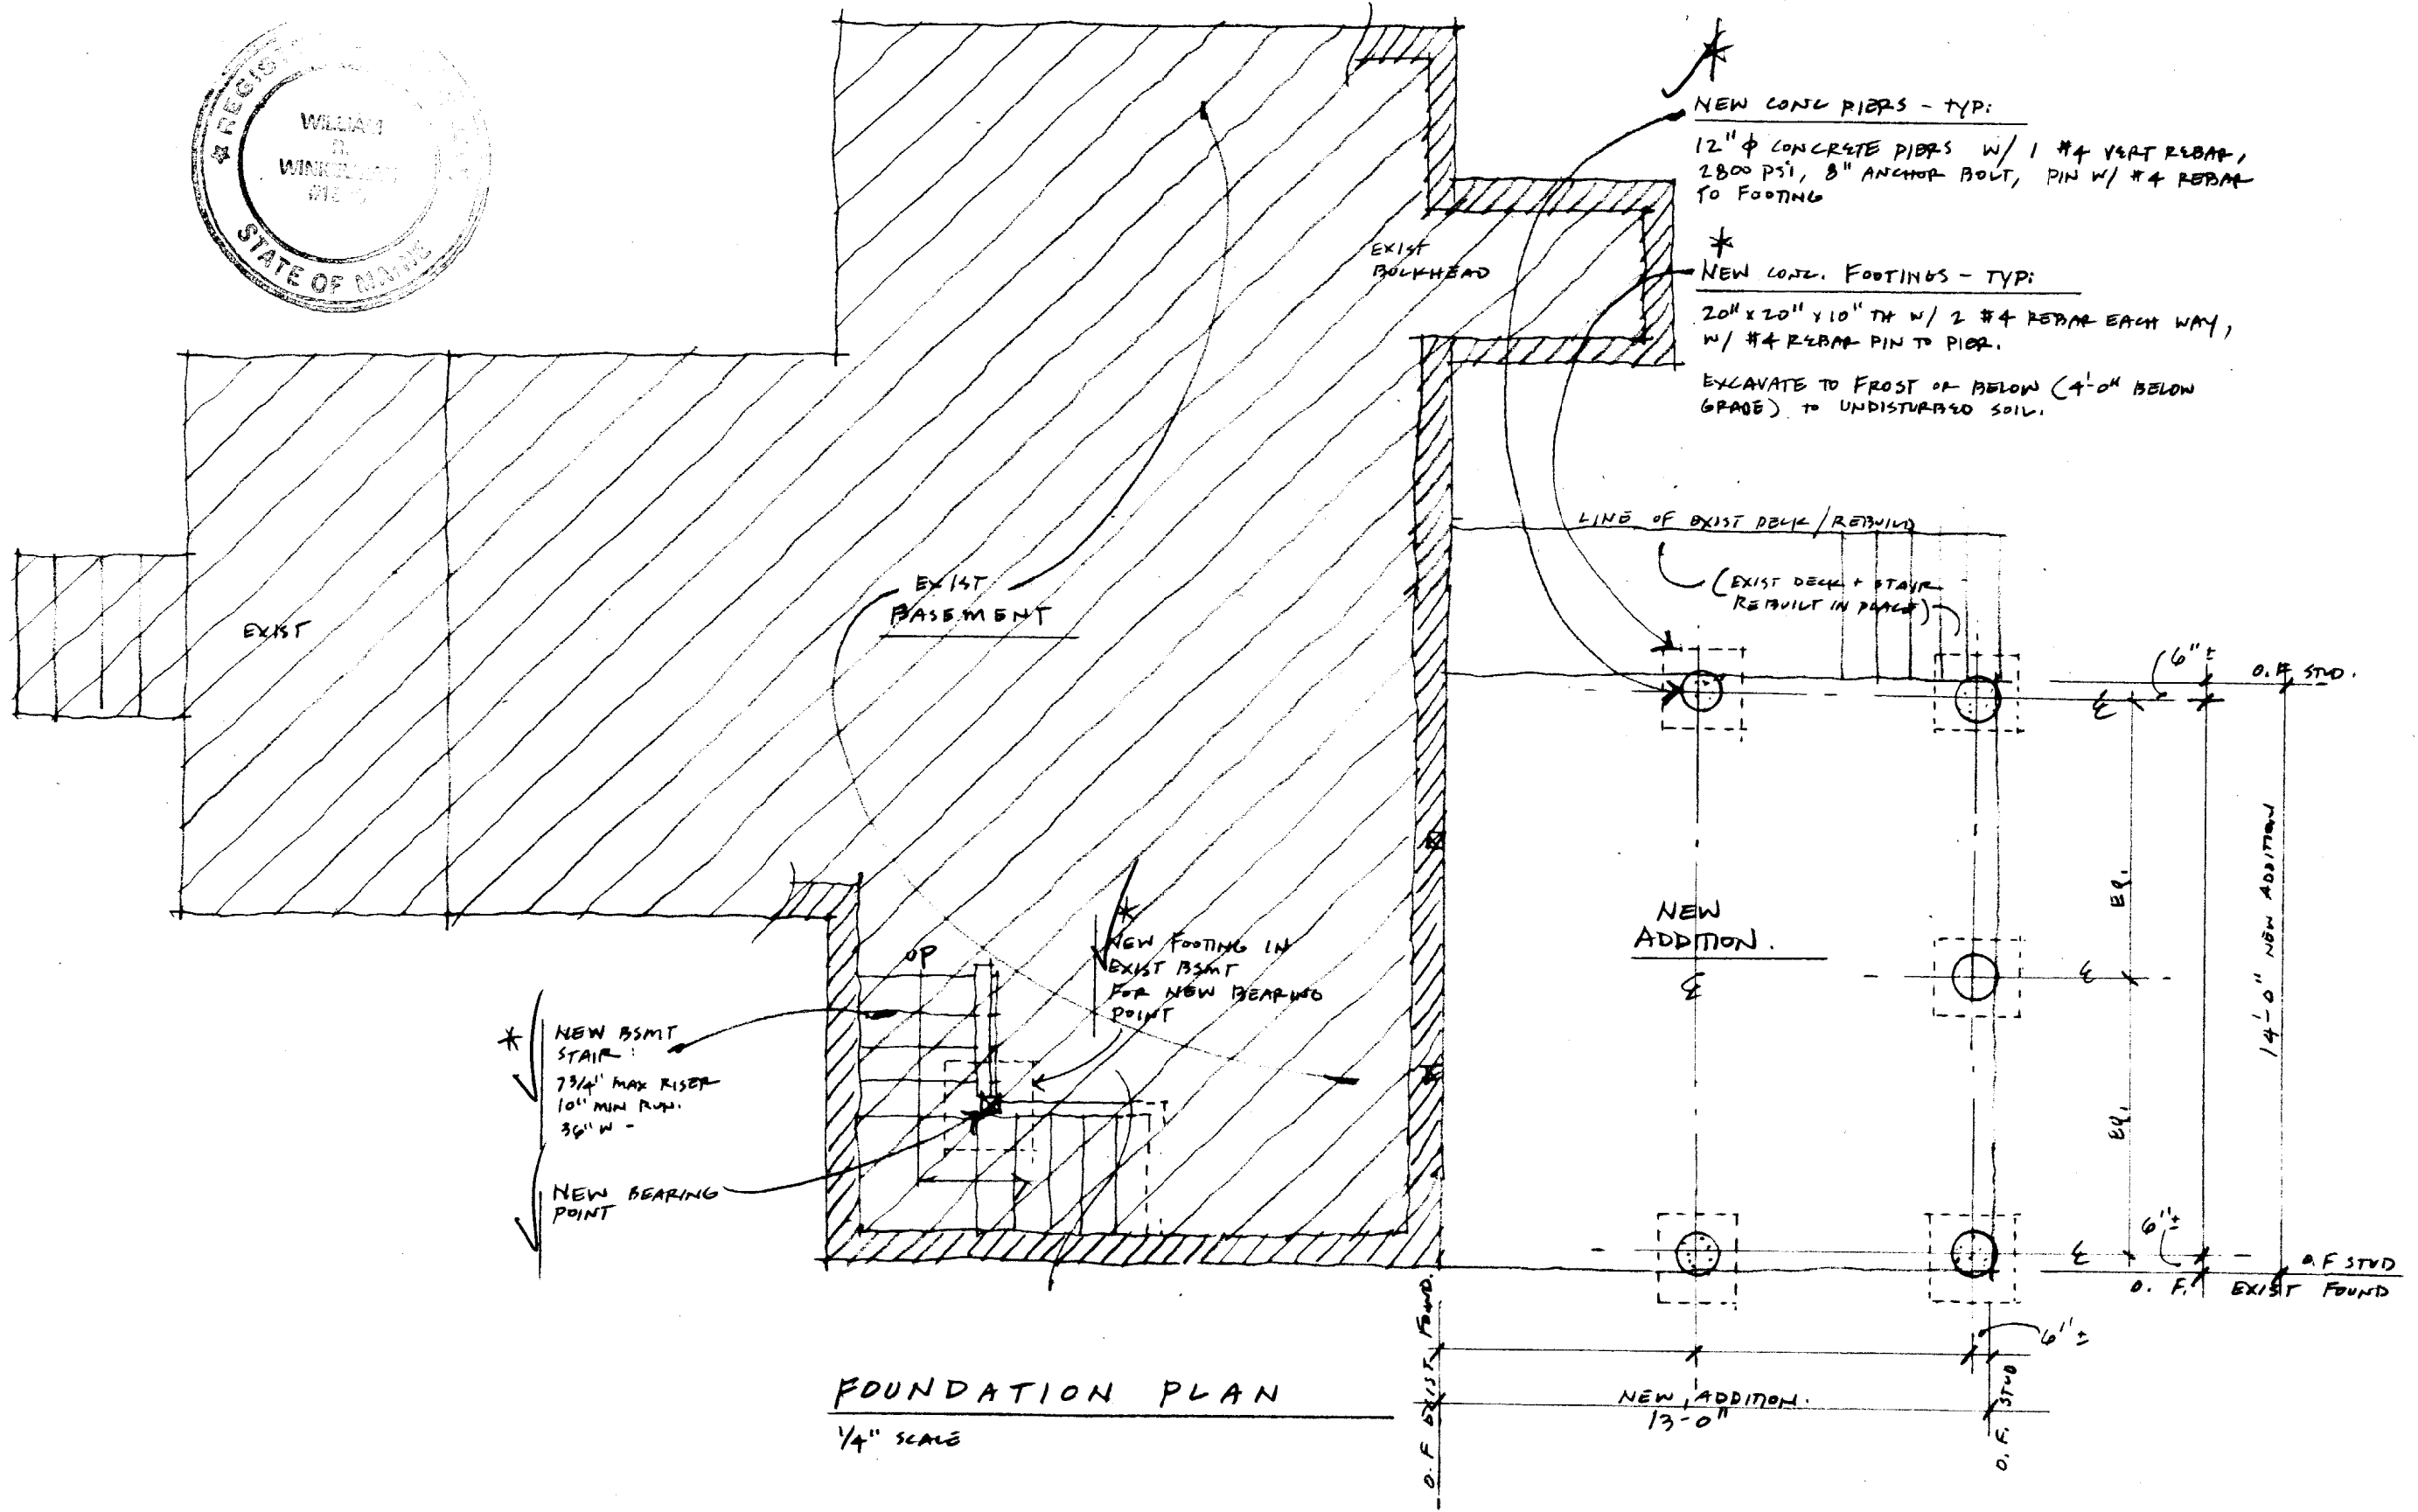 REGIS
WILLIAM
STATE OF MAINE
NEW CONC PIERS - TYP:
12" φ CONCRETE PIERS W/ 1 #4 VERT REBAR,
2800 PSI, 8" ANCHOR BOLT, PIN W/ #4 REBAR
TO FOOTING
NEW CONC. FOOTINGS - TYP:
20" x 20" x 10" TH W/ 2 #4 REBAR EACH WAY,
W/ #4 REBAR PIN TO PIER.
EXCAVATE TO FROST OR BELOW (4'-0" BELOW
GRADE) TO UNDISTURBED SOIL.
EXIST
BULKHEAD
LINE OF EXIST DECK/REBUILD
(EXIST DECK + STAIR
REBUILT IN PLACE)
EXIST
BASEMENT
EXIST
6" ±
O.F. STUD.
℄
14'-0" NEW ADDITION
EQ.
NEW
ADDITION.
℄
℄
UP
* NEW FOOTING IN
EXIST BSMT
FOR NEW BEARING
POINT
* NEW BSMT
STAIR:
7 3/4" MAX RISER
10" MIN RUN.
36" W -
NEW BEARING
POINT
EQ.
6" ±
℄
O.F STUD
O. F. EXIST FOUND
6" ±
O.F EXIST FOUND.
NEW ADDITION.
13-0"
O.F. STUD
FOUNDATION PLAN
1/4" SCALE